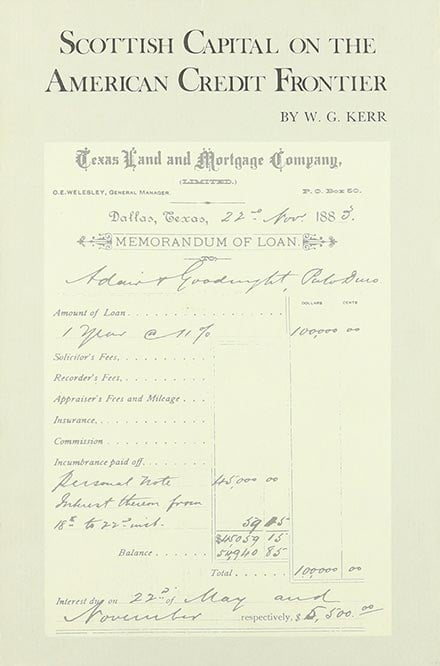 SCOTTISH CAPITAL ON THE
AMERICAN CREDIT FRONTIER
BY W. G. KERR
Texas Land and Mortgage Company,
(LIMITED.)
O. E. WELESLEY, GENERAL MANAGER. P. O. Box 50.
Dallas, Texas, 22nd Nov. 1883.
MEMORANDUM OF LOAN.
Adair & Goodnight, Palo Duro
DOLLARS CENTS
Amount of Loan
1 Year @ 11% 100,000 00
Solicitor's Fees,
Recorder's Fees,
Appraiser's Fees and Mileage
Insurance,
Commission
Incumbrance paid off
Personal Note 45,000 00
Interest thereon from
18th to 22nd inst. 59 15
$45059 15
Balance 54940 85
Total 100,000 00
Interest due on 22nd of May and
November respectively, $5,500.00